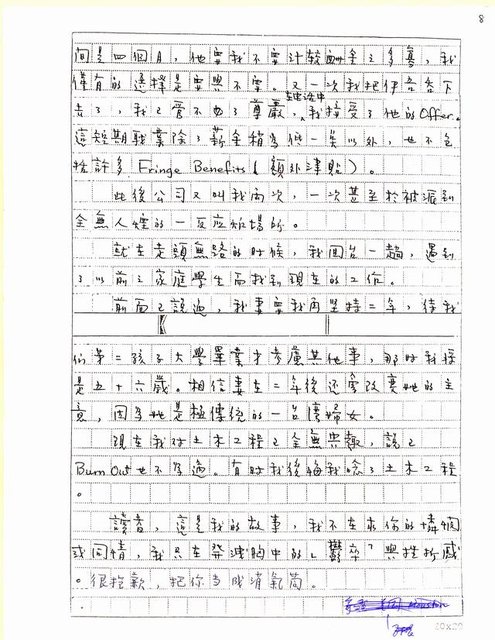 8
間是四個月,他要我不要計較酬金之多寡,我
僅有的選擇是要與不要。又一次我把伊吞吞下
去了,我已管不著了尊嚴,我接受了他的Offer。
這短期職業除了薪金稍為供一 以外,也不包
括許多Fringe Benefits(額外津貼)。
此後公司又叫我兩次,一次甚至於被派到
全無人煙的一反應 場所。
就在走頭無路的時候,我回台一趟,遇到
了以前之家庭學生而找到現在的工作。
前面已說過,我妻要我再堅持二年,待我
們第二孩子大學畢業才考慮其他事,那時我將
是五十六歲。相信妻在二年後還會改變她的主
意,因為她是極傳統的一台灣婦女。
現在我對土木工程已全無興趣,說已
Burn Out也不為過。有時我後悔我唸了土木工程
。
讀者,這是我的故事,我不在求你的憐憫
或同情,我只在發洩胸中的「鬱卒」與挫折感
。很抱歉,把你當成消氣筒。
Houston
20×20